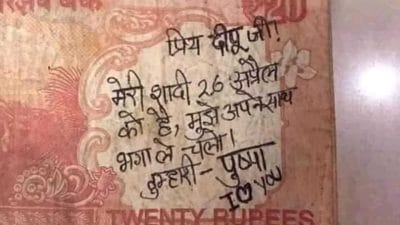 ₹20
प्रिय दीपू जी!
मेरी शादी 26 अप्रैल
को है, मुझे अपने साथ
भगा ले चलो।
तुम्हारी- पुष्पा
I ♡ You
TWENTY RUPEES